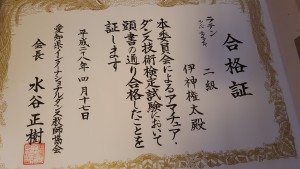 合格証
ラテン
二級
伊神権太殿
本委員会によるアマチュア・
ダンス技術検定試験において
頭書の通り合格したことを
証します
平成二八年四月十七日
愛知県インターナショナルダンス教師協会
会長 水谷正樹